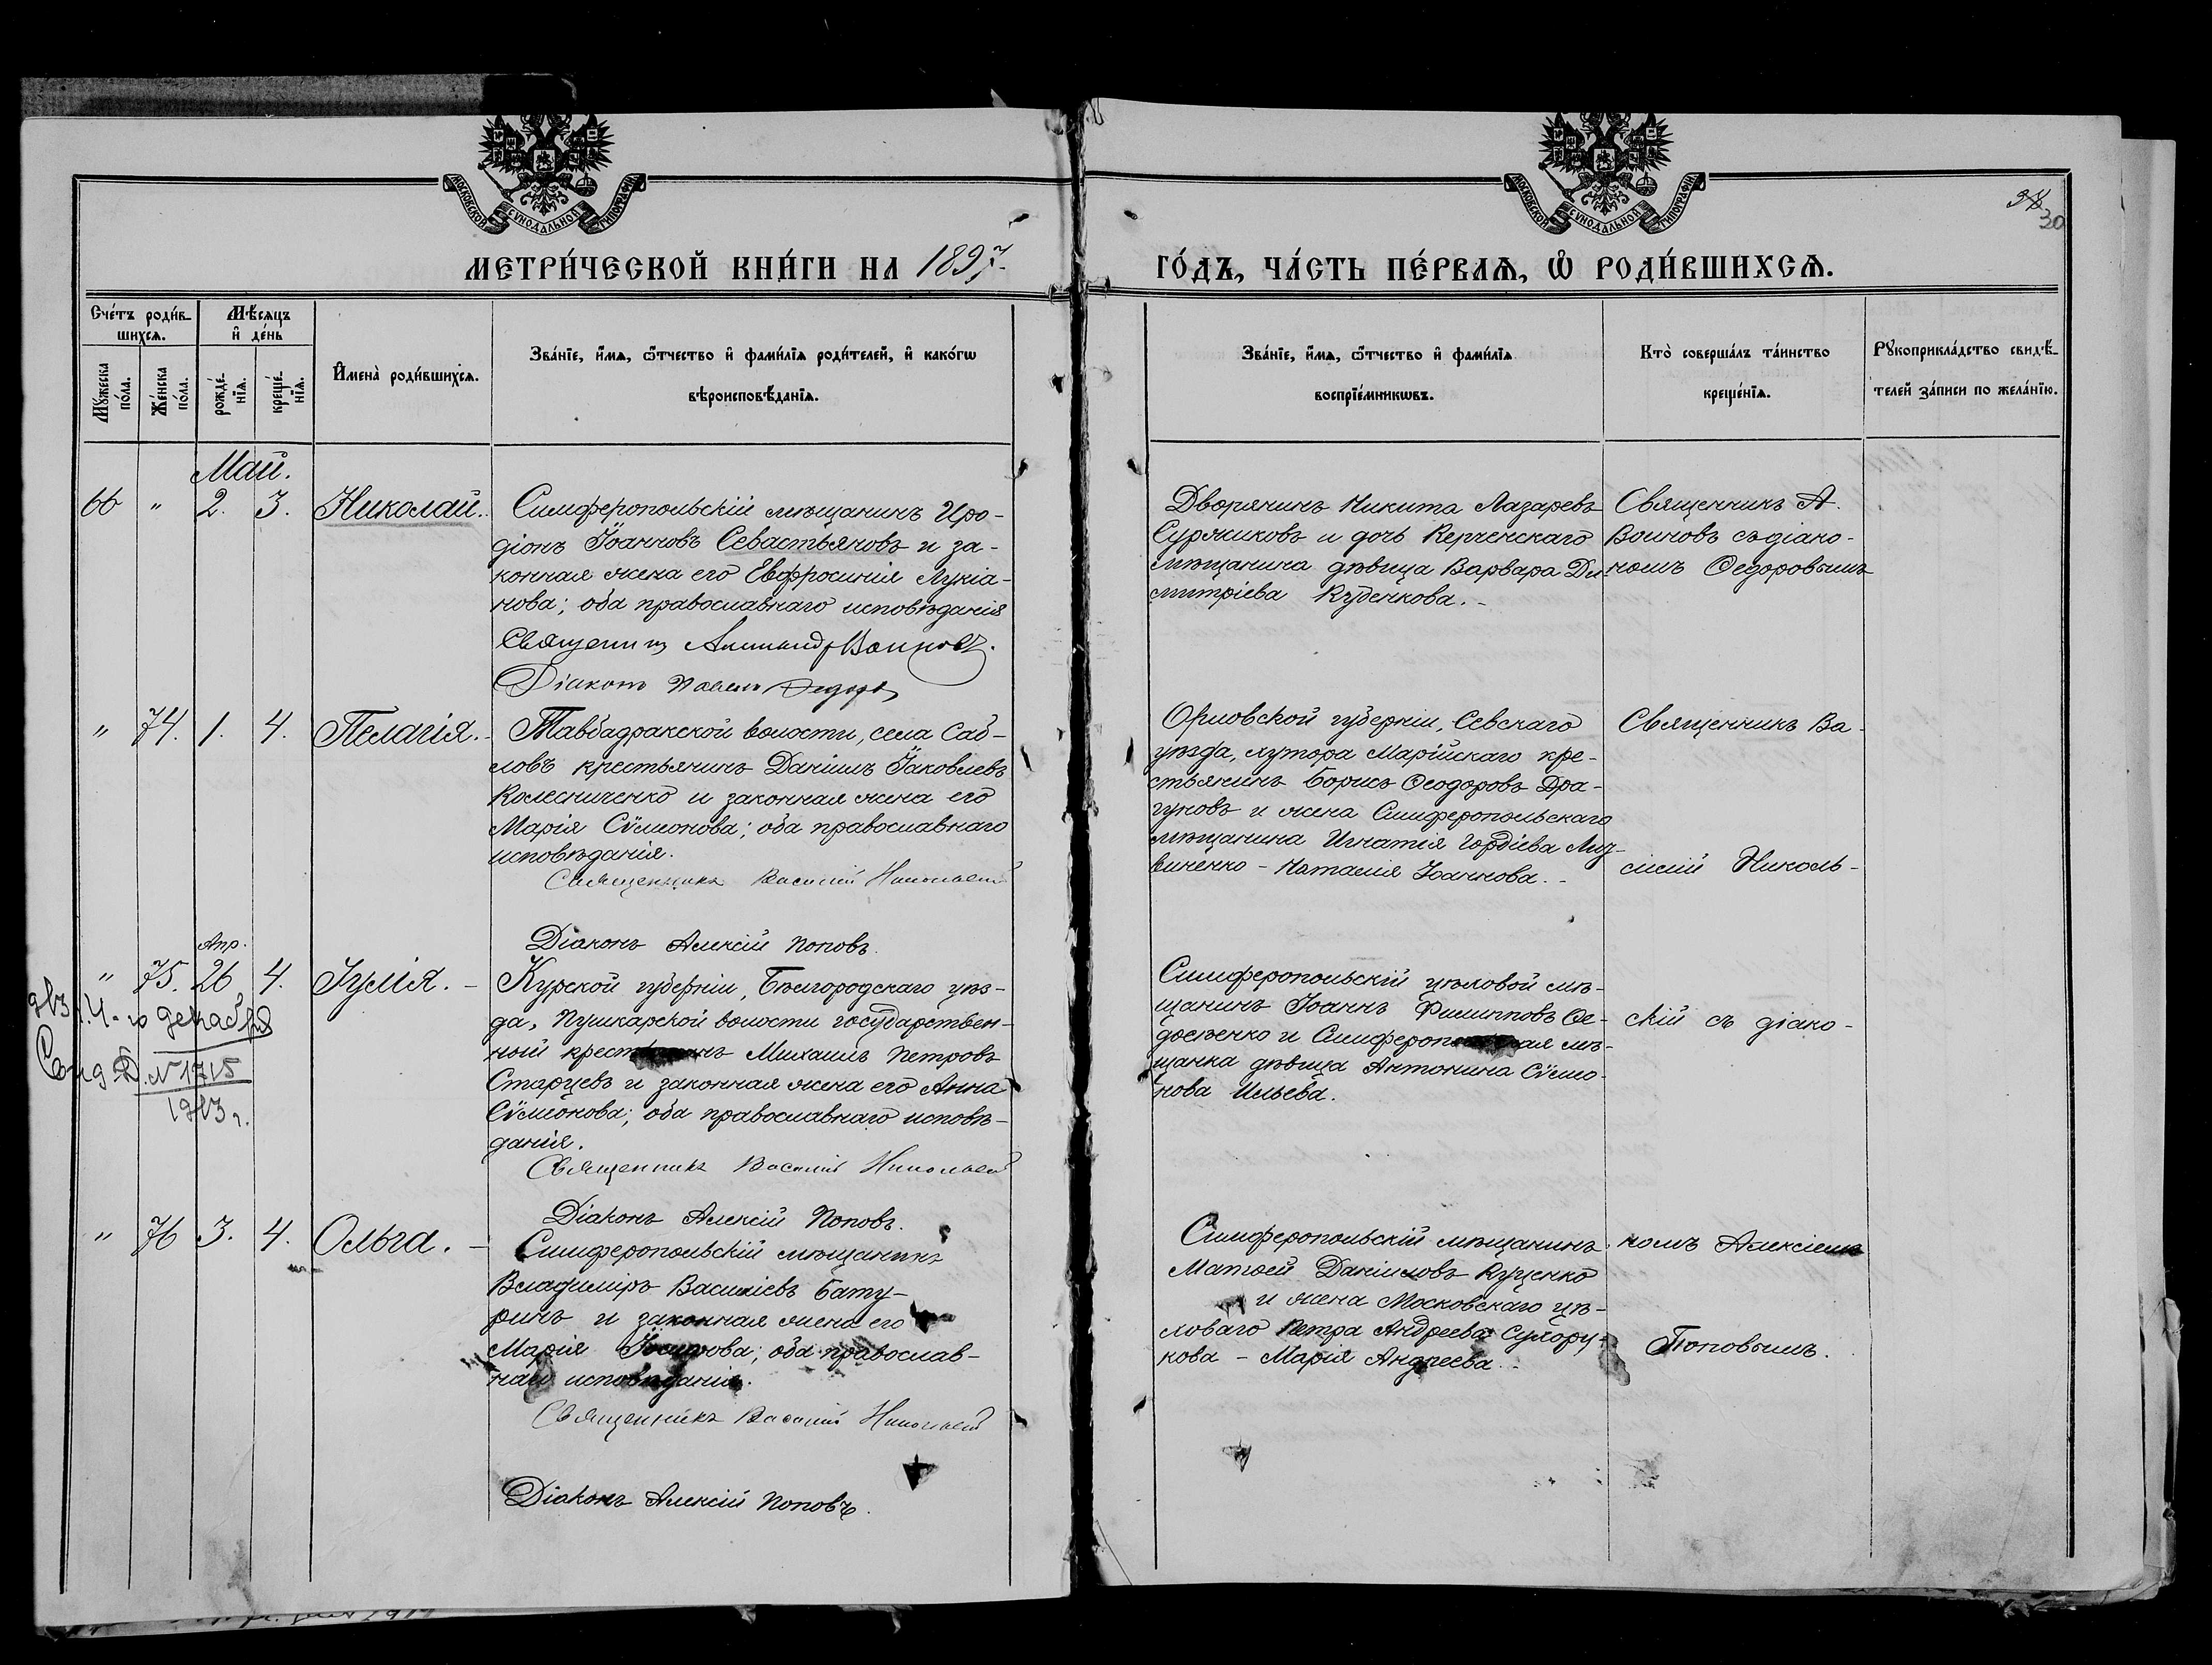 МОСКОВСКОЙ СѴНОДАЛЬНОЙ ТИПОГРАФІИ
МОСКОВСКОЙ СѴНОДАЛЬНОЙ ТИПОГРАФІИ
30
МЕТРИ́ЧЕСКОЙ КНИ́ГИ НА 1897
ГО́ДЪ, ЧА́СТЬ ПЕ́РВАЯ, Ѡ РОДИ́ВШИХСЯ.
Сче́тъ роди́вшихся.
Мѣ́сяцъ и де́нь
Му́жеска по́ла.
Же́нска по́ла.
рожде́нїя.
креще́нїя.
И҆мена̀ роди́вшихся.
Зва́нїе, и҆́мя, ѻ҆́тчество и҆ фами́лїя роди́телей, и҆ како́гѡ вѣроисповѣ́данїя.
Зва́нїе, и҆́мя, ѻ҆́тчество и҆ фами́лїя воспрїе́мникѡвъ.
Кто̀ соверша́лъ та́инство креще́нїя.
Рꙋкоприкла́дство свидѣ́телей за́писи по жела́нїю.
Май.
66 " 2. 3. Николай.
Симферопольскій мѣщанинъ Иро-
діонъ Іоанновъ Севастьяновъ и за-
конная жена его Евфросинія Лукіа-
нова; оба православнаго исповѣданія
Священникъ Александръ Воиновъ.
Діаконъ Павелъ Федоровъ
Дворянинъ Никита Лазаревъ
Сурожиковъ и дочь Керченскаго
мѣщанина дѣвица Варвара Ди-
митріева Кубенкова.-
Священникъ А.
Воиновъ съ діако-
номъ Федоровымъ
" 74. 1. 4. Пелагія.-
Тавбадракской волости, села Саб-
ловъ крестьянинъ Даніилъ Іаковлевъ
Колесниченко и законная жена его
Марія Сѵмеонова; оба православнаго
исповѣданія.
Священникъ Василій Никольскій
Діаконъ Алексій Поповъ.
Орловской губерніи, Севскаго
уѣзда, хутора Марійскаго кре-
стьянинъ Борисъ Ѳеодоровъ Дра-
гуновъ и жена Симферопольскаго
мѣщанина Игнатія Гордіева Лит-
виненко - Наталія Іоаннова.-
Священникъ Ва-
силій Николь-
Апр.
" 75. 26 4. Іулія. -
4-го декабря
№ 1715
1913 г.
Курской губерніи, Бѣлгородскаго уѣз-
да, Пушкарской волости государствен-
ный крестьянинъ Михаилъ Петровъ
Старцевъ и законная жена его Анна
Сѵмеонова; оба православнаго исповѣ-
данія.
Священникъ Василій Никольскій
Діаконъ Алексій Поповъ.
Симферопольскій цѣховой мѣ-
щанинъ Іоаннъ Филипповъ Ѳе-
досѣенко и Симферопольская мѣ-
щанка дѣвица Антонина Сѵмео-
нова Ильева.
скій съ діако-
" 76 3. 4. Ольга. -
Симферопольскій мѣщанинъ
Владиміръ Василіевъ Бату-
ринъ и законная жена его
Марія Іосифова; оба православ-
наго исповѣданія.
Священникъ Василій Никольскій
Діаконъ Алексій Поповъ.
Симферопольскій мѣщанинъ
Матѳей Даніиловъ Куценко
и жена Московскаго цѣ-
ховаго Петра Андреева Сухору-
кова - Марія Андреева.-
номъ Алексіемъ
Поповымъ.